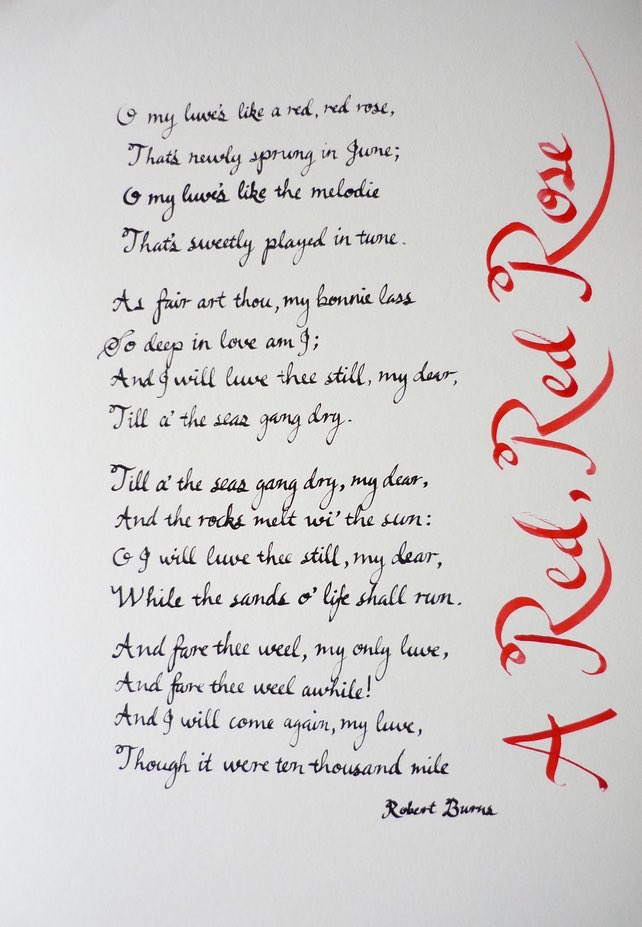 A Red, Red Rose
O my luve's like a red, red rose,
That's newly sprung in June;
O my luve's like the melodie
That's sweetly played in tune.
As fair art thou, my bonnie lass
So deep in love am I;
And I will luve thee still, my dear,
Till a' the seas gang dry.
Till a' the seas gang dry, my dear,
And the rocks melt wi' the sun:
O I will luve thee still, my dear,
While the sands o' life shall run.
And fare thee weel, my only luve,
And fare thee weel awhile!
And I will come again, my luve,
Though it were ten thousand mile
Robert Burns